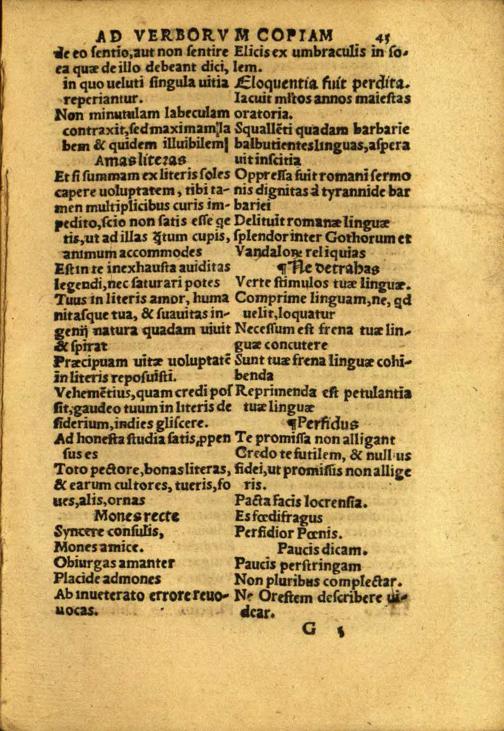 AD VERBORVM COPIAM 45
de eo sentio, aut non sentire
ea quæ de illo debeant dici,
in quo ueluti singula uitia
reperiantur.
Non minutulam labeculam
contraxit, sed maximam, la
bem & quidem illuibilem
Amas literas
Et si summam ex literis soles
capere uoluptatem, tibi ta-
men multiplicibus curis im-
pedito, scio non satis esse ge
tis, ut ad illas q̃tum cupis,
animum accommodes
Est in te inexhausta auiditas
legendi, nec saturari potes
Tuus in literis amor, huma
nitasque tua, & suauitas in-
genij natura quadam uiuit
& spirat
Præcipuam uitæ uoluptatẽ
in literis reposuisti.
Vehemẽtius, quam credi pos
sit, gaudeo tuum in literis de
siderium, indies gliscere.
Ad honesta studia satis, ppen
sus es
Toto pectore, bonas literas,
& earum cultores, tueris, fo
ues, alis, ornas
Mones recte
Syncere consulis,
Mones amice.
Obiurgas amanter
Placide admones
Ab inueterato errore reuo-
uocas.
Elicis ex umbraculis in so-
lem.
Eloquentia fuit perdita.
Iacuit ml'tos annos maiestas
oratoria.
Squallẽti quadam barbarie
balbutientes linguas, aspera
uit inscitia
Oppressa fuit romani sermo
nis dignitas à tyrannide bar
bariei
Delituit romanæ linguæ
splendor inter Gothorum et
Vandalorꝝ reliquias
¶ Ne detrahas
Verte stimulos tuæ linguæ.
Comprime linguam, ne, qd
uelit, loquatur
Necessum est frena tuæ lin-
guæ concutere
Sunt tuæ frena linguæ cohi-
benda
Reprimenda est petulantia
tuæ linguæ
¶ Perfidus
Te promissa non alligant
Credo te futilem, & nullius
fidei, ut promissis non allige
ris.
Pacta facis locrensia.
Es fœdifragus
Perfidior Pœnis.
Paucis dicam.
Paucis perstringam
Non pluribus complectar.
Ne Orestem describere ui-
dear.
G